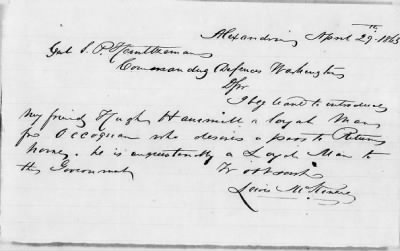 Alexandria April 29th 1863
Genl S. P. Heintzelman
Commanding Defences Washington
Sir
I beg leave to introduce
my friend Hugh a loyal Man
from Occoquan who desires a pass to Return
home. he is unquestionably a Loyal Man to
the Government
Lewis McKenzie